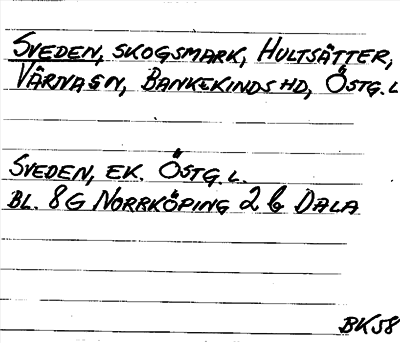 SVEDEN, SKOGSMARK, HULTSÄTTER,
VÄRNA SN, BANKEKINDS HD, ÖSTG. L
SVEDEN, EK. ÖSTG. L.
BL. 8G NORRKÖPING 2 b DALA
BK 58